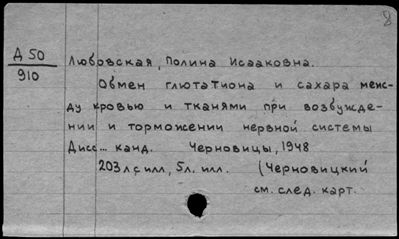 8
Д 50
910
Любовская, Полина Исааковна.
Обмен глютатиона и сахара меж-
ду кровью и тканями при возбужде-
нии и торможении нервной системы
Дисс... канд. Черновицы, 1948
203 л. с илл, 5 л. илл. (Черновицкий
см. след. карт.